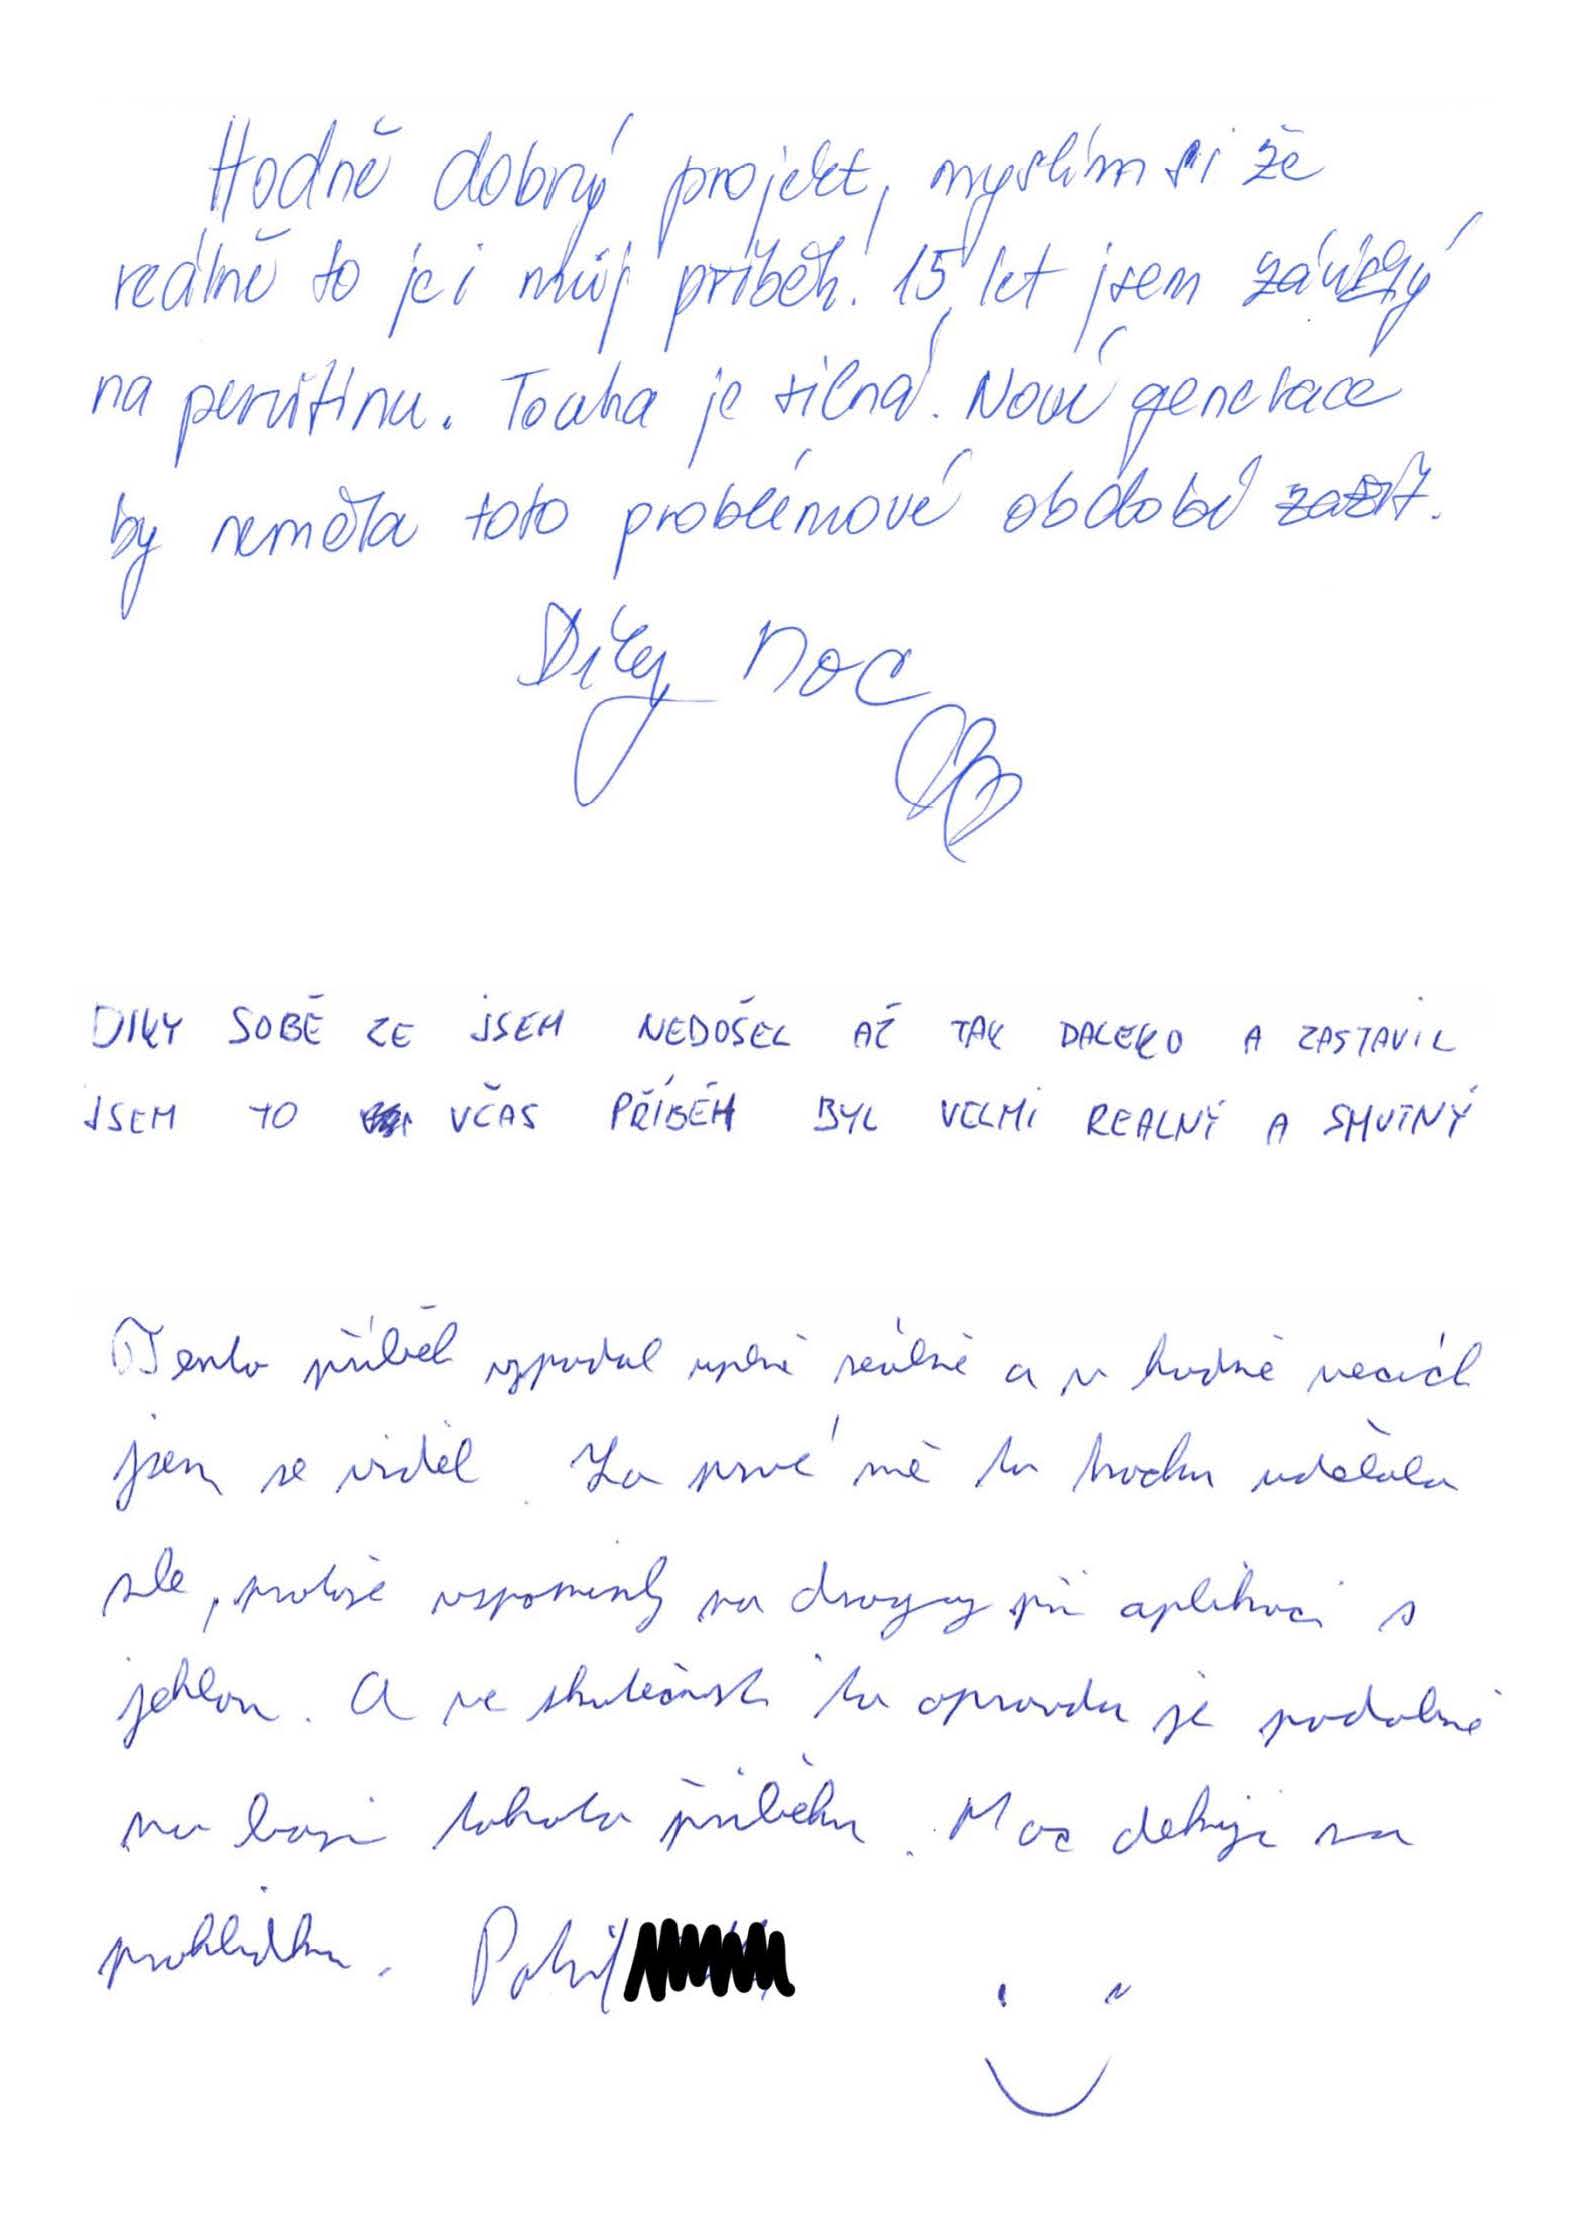 Hodně dobrý projekt, myslím si že
reálně to je i můj příběh. 15 let jsem závislý
na pervitinu. Touha je silná. Nové generace
by neměla toto problémové období zažít.
Díky moc
DIKY SOBĚ ZE JSEM NEDOŠEL AŽ TAK DALEKO A ZASTAVIL
JSEM TO VČAS PŘÍBĚH BYL VELMI REALNÝ A SMUTNÝ
Tento příběh vypadal uplně reálně a v hodně vecách
jsem se viděl. Za prvé mě to trochu udělalo
zle, protože vzpomínky na drogy při aplikaci s
jehlou. A ve skutečnosti to opravdu je podobné
na bázi tohoto příběhu. Moc dekuji za
prohlídku.